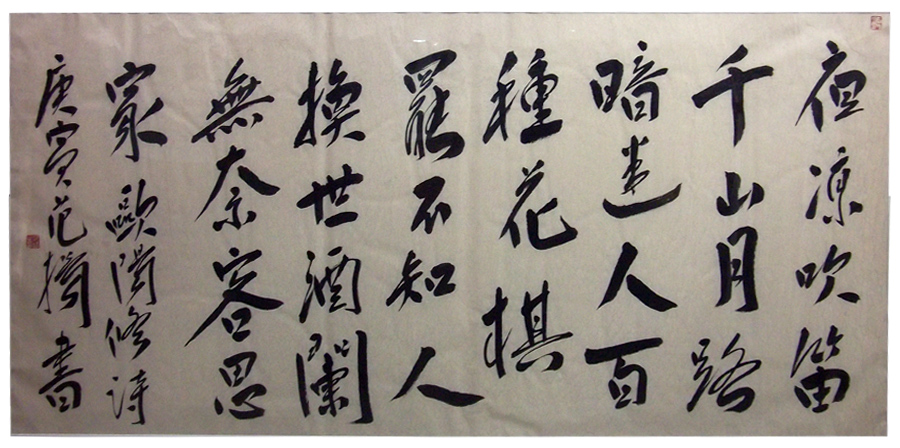 夜涼吹笛
千山月路
暗迷人百
種花棋
罷不知人
換世酒闌
無奈客思
家 歐陽修詩
庚寅范書